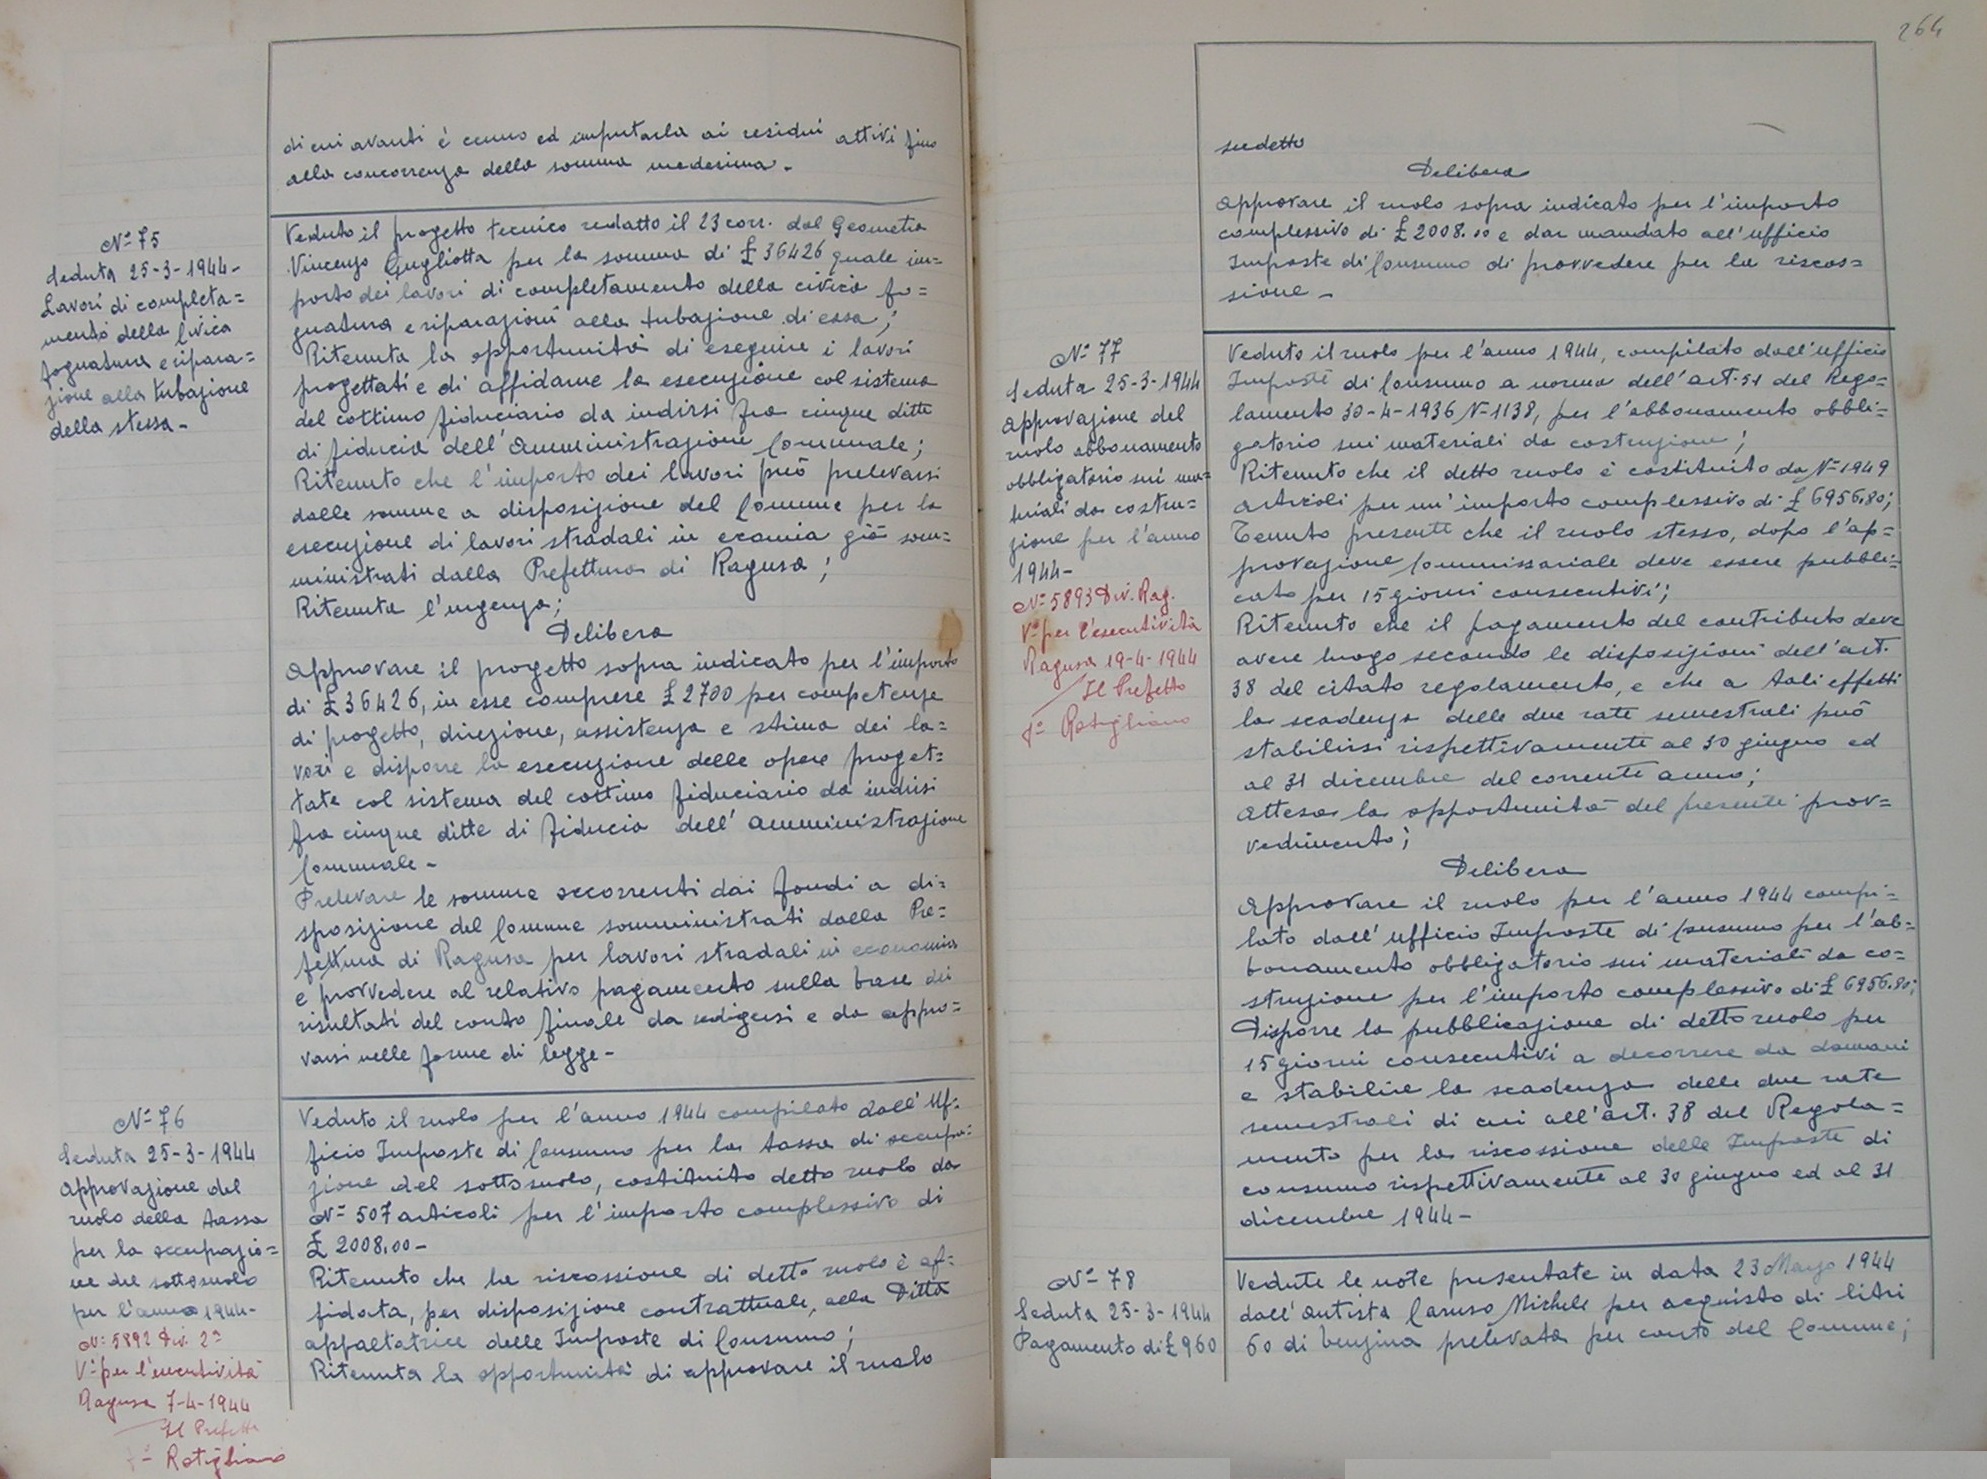 di cui avanti è cenno ed imputarla ai residui attivi fino
alla concorrenza della somma medesima.-
Nº 75
Seduta 25-3-1944-
Lavori di completa=
mento della Civica
fognatura e ripara=
zione alla tubazione
della stessa.-
Veduto il progetto tecnico redatto il 23 corr. dal Geometra
Vincenzo Gugliotta per la somma di £ 36426 quale im=
porto dei lavori di completamento della civica fo=
gnatura e riparazioni alla tubazione di essa;
Ritenuta la opportunità di eseguire i lavori
progettati e di affidarne la esecuzione col sistema
del cottimo fiduciario da indirsi fra cinque ditte
di fiducia dell'Amministrazione Comunale;
Ritenuto che l'importo dei lavori può prelevarsi
dalle somme a disposizione del Comune per la
esecuzione di lavori stradali in ecomia già som=
ministrati dalla Prefettura di Ragusa;
Ritenuta l'urgenza;
Delibera
Approvare il progetto sopra indicato per l'importo
di £ 36426, in esse comprese £ 2700 per competenze
di progetto, direzione, assistenza e stima dei la=
vori e disporre la esecuzione delle opere proget=
tate col sistema del cottimo fiduciario da indirsi
fra cinque ditte di fiducia dell'Amministrazione
Comunale-
Prelevare le somme occorrenti dai fondi a di=
sposizione del Comune somministrati dalla Pre=
fettura di Ragusa per lavori stradali in economia
e provvedere al relativo pagamento sulla base dei
risultati del conto finale da redigersi e da appro=
varsi nelle forme di legge-
Nº 76
Seduta 25-3-1944
Approvazione del
ruolo della tassa
per la occupazio=
ne del sottosuolo
per l'anno 1944-
Nº 5892 Div. 2ª
Vº per l'esecutività
Ragusa 7-4-1944
Il Prefetto
fº Ratigliano
Veduto il ruolo per l'anno 1944 compilato dall'Uf=
ficio Imposte di Consumo per la tassa di occupa=
zione del sottosuolo, costituito detto ruolo da
Nº 507 articoli per l'importo complessivo di
£ 2008,00-
Ritenuto che la riscossione di detto ruolo è af=
fidata, per disposizione contrattuale, alla Ditta
appaltatrice delle Imposte di Consumo;
Ritenuta la opportunità di approvare il ruolo
264
sudetto
Delibera
Approvare il ruolo sopra indicato per l'importo
complessivo di £ 2008.00 e dar mandato all'ufficio
Imposte di Consumo di provvedere per la riscos=
sione-
Nº 77
Seduta 25-3-1944
Approvazione del
ruolo abbonamento
obbligatorio sui ma=
teriali da costru=
zione per l'anno
1944-
Nº 5893 Div. Rag.
Vº per l'esecutività
Ragusa 19-4-1944
Il Prefetto
fº Ratigliano
Veduto il ruolo per l'anno 1944, compilato dall'ufficio
Imposte di Consumo a norma dell'art. 51 del Rego=
lamento 30-4-1936 Nº 1138, per l'abbonamento obbli=
gatorio sui materiali da costruzione;
Ritenuto che il detto ruolo è costituito da Nº 1949
articoli per un'importo complessivo di £ 6956.80;
Tenuto presente che il ruolo stesso, dopo l'ap=
provazione Commissariale deve essere pubbli=
cato per 15 giorni consecutivi;
Ritenuto che il pagamento del contributo deve
avere luogo secondo le disposizioni dell'art.
38 del citato regolamento, e che a tali effetti
la scadenza delle due rate semestrali può
stabilirsi rispettivamente al 30 giugno ed
al 31 dicembre del corrente anno;
Attesa la opportunità del presente prov=
vedimento;
Delibera
Approvare il ruolo per l'anno 1944 compi=
lato dall'ufficio Imposte di Consumo per l'ab=
bonamento obbligatorio sui materiali da co=
struzione per l'importo complessivo di £ 6956.80;
Disporre la pubblicazione di detto ruolo per
15 giorni consecutivi a decorrere da domani
e stabilire la scadenza delle due rate
semestrali di cui all'art. 38 del Regola=
mento per la riscossione delle Imposte di
consumo rispettivamente al 30 giugno ed al 31
dicembre 1944-
Nº 78
Seduta 25-3-1944
Pagamento di £ 960
Vedute le note presentate in data 23 Marzo 1944
dall'autista Caruso Michele per acquisto di litri
60 di benzina prelevata per conto del Comune;